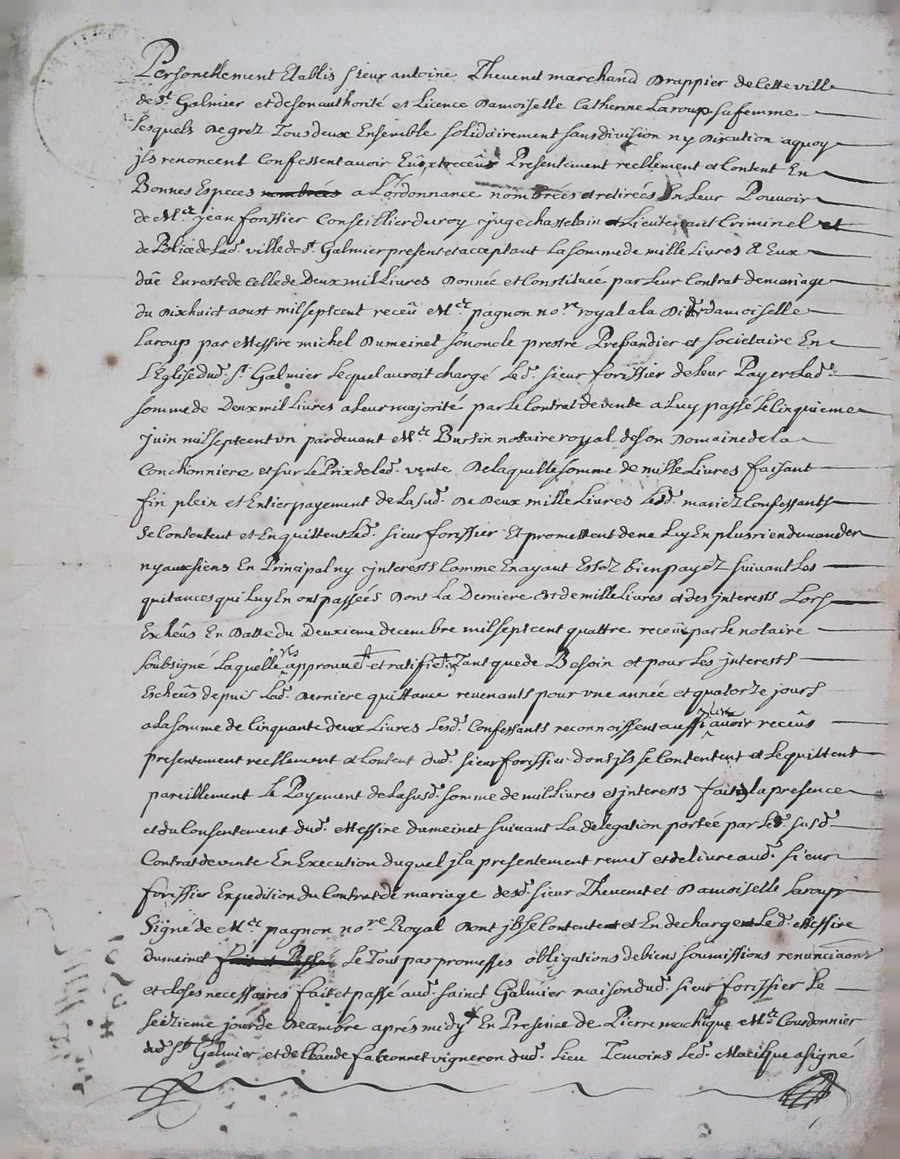 Personellement Etablis sieur antoine Thevenet marchand Drappier de cette ville
de st. Galmier et de son authorité et Licence Damoiselle Catherine Laroup sa femme
lesquels De grez Tous deux Ensemble solidairement sans division ny Discution a quoy
jls renoncent Confessent avoir Eü et receüs Presentement reellement et Content En
Bonnes Especes nombrées a L'ordonnance nombrées et retirées En Leur Pouvoir
de Mre. jean forissier Conseillier du roy juge chastelain et Lieutenant Criminel et
de Police de Lad. ville de st. Galmier present et acceptant La somme de mille Livres a Eux
düe En reste de celle de Deux mil Livres Donnée et Constituée par Leur Contrat de mariage
du Dixhuict aoust mil sept cent receü Me. pagnon nore. royal a la Ditte damoiselle
Laroup par Messire michel Dumeinet son oncle prestre Prebandier et societaire En
L'Eglise dud. st. Galmier Lequel auroit chargé Led. sieur forissier de Leur Payer Lad.
somme de Deux mil Livres a Leur majorité par Le Contrat de vente a Luy passé Le Cinquieme
juin mil sept cent vn pardevant Me. Burtin notaire royal de son Domaine de la
Conchonniere et sur Le Prix de lad. vente De laquelle somme de mille Livres faisant
fin plein et Entier payement de La sud. De Deux mille Livres Lesd. mariez Confessants
se Contentent et En quittent Led. sieur forissier Et promettent de ne Luy En plus rien demander
ny aux siens En Principal ny jnterests Comme En ayant Estez bien payez suivant Les
quitances qui Luy En ont passées Dont La Derniere Est de mille Livres et des jnterests Lors
Escheüs En Datte du Deuxieme decembre mil sept cent quattre receüe par Le notaire
soubsigné Laquelle ils approuvet et ratifiet Tant que de Besoin et pour Les jnterests
Escheüs depuis Lad. Derniere quittance revenants pour vne année et quatorze jours
a La somme de Cinquante deux Livres Lesd. Confessants reconnoissent aussi avoir receüs
presentement reellement et Content dud. sieur forissier dont jls se Contentent et Le quittent
pareillement Le Payement de La susd. somme de mil Livres et jnterests fait la presence
et du Consentement dud. Messire dumeinet suivant La delegation portée par Led. susd.
Contrat de vente En Execution duquel jl a presentement remis et delivré aud. sieur
forissier Expedition du Contrat de mariage desd. sieur Thevenet et Damoiselle Laroup
Signé de Me. pagnon nore. Royal Dont jls se Contentent et En dechargent Led. Messire
dumeinet fait et Passé Le Tout par promesses obligations de biens soumissions renunciaons
et closes necessaires fait et passé aud. sainct Galmier maison dud. sieur forissier Le
seizieme jour de Decembre aprés midy En Presence de Pierre machique Me. Courdonnier
dud. st. Galmier et de Claude falconnet vigneron dud. Lieu Temoins Led. Macique a signé